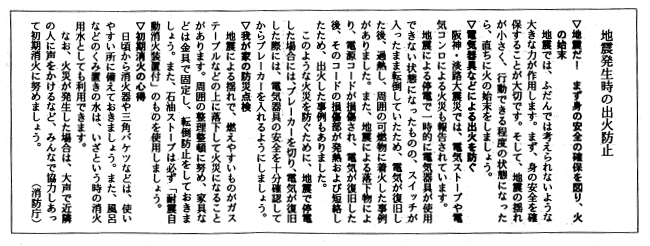 地震発生時の出火防止
▽地震だ！　まず身の安全の確保を図り、火
の始末
　地震では、ふだんでは考えられないような
大きな力が作用します。まず、身の安全を確
保することが大切です。そして、地震の揺れ
が小さく、行動できる程度の状態になった
ら、直ちに火の始末をしましょう。
▽電気器具などによる出火を防ぐ
　阪神・淡路大震災では、電気ストーブや電
気コンロによる火災も報告されています。
　地震による停電で一時的に電気器具が使用
できない状態になったものの、スイッチが
入ったまま転倒していたため、電気が復旧し
た後、過熱し、周囲の可燃物に着火した事例
がありました。また、地震による落下物によ
り、電源コードが損傷され、電気が復旧した
後、そのコードの損傷部が発熱および短絡し
たため、出火した事例もありました。
　このような火災を防ぐために、地震で停電
した場合には、ブレーカーを切り、電気が復旧
した際には、電気器具の安全を十分確認して
からブレーカーを入れるようにしましょう。
▽我が家の防災点検
　地震による揺れで、燃えやすいものがガス
テーブルなどの上に落下して火災になること
があります。周囲の整理整頓に努め、家具な
どは金具で固定し、転倒防止をしておきま
しょう。また、石油ストーブは必ず「耐震自
動消火装置付」のものを使用しましょう。
▽初期消火の心得
　日頃から消火器や三角バケツなどは、使い
やすい所に備えておきましょう。また、風呂
などのくみ置きの水は、いざという時の消火
用水としても利用できます。
　なお、火災が発生した場合は、大声で近隣
の人に声をかけるなど、みんなで協力しあっ
て初期消火に努めましょう。
（消防庁）